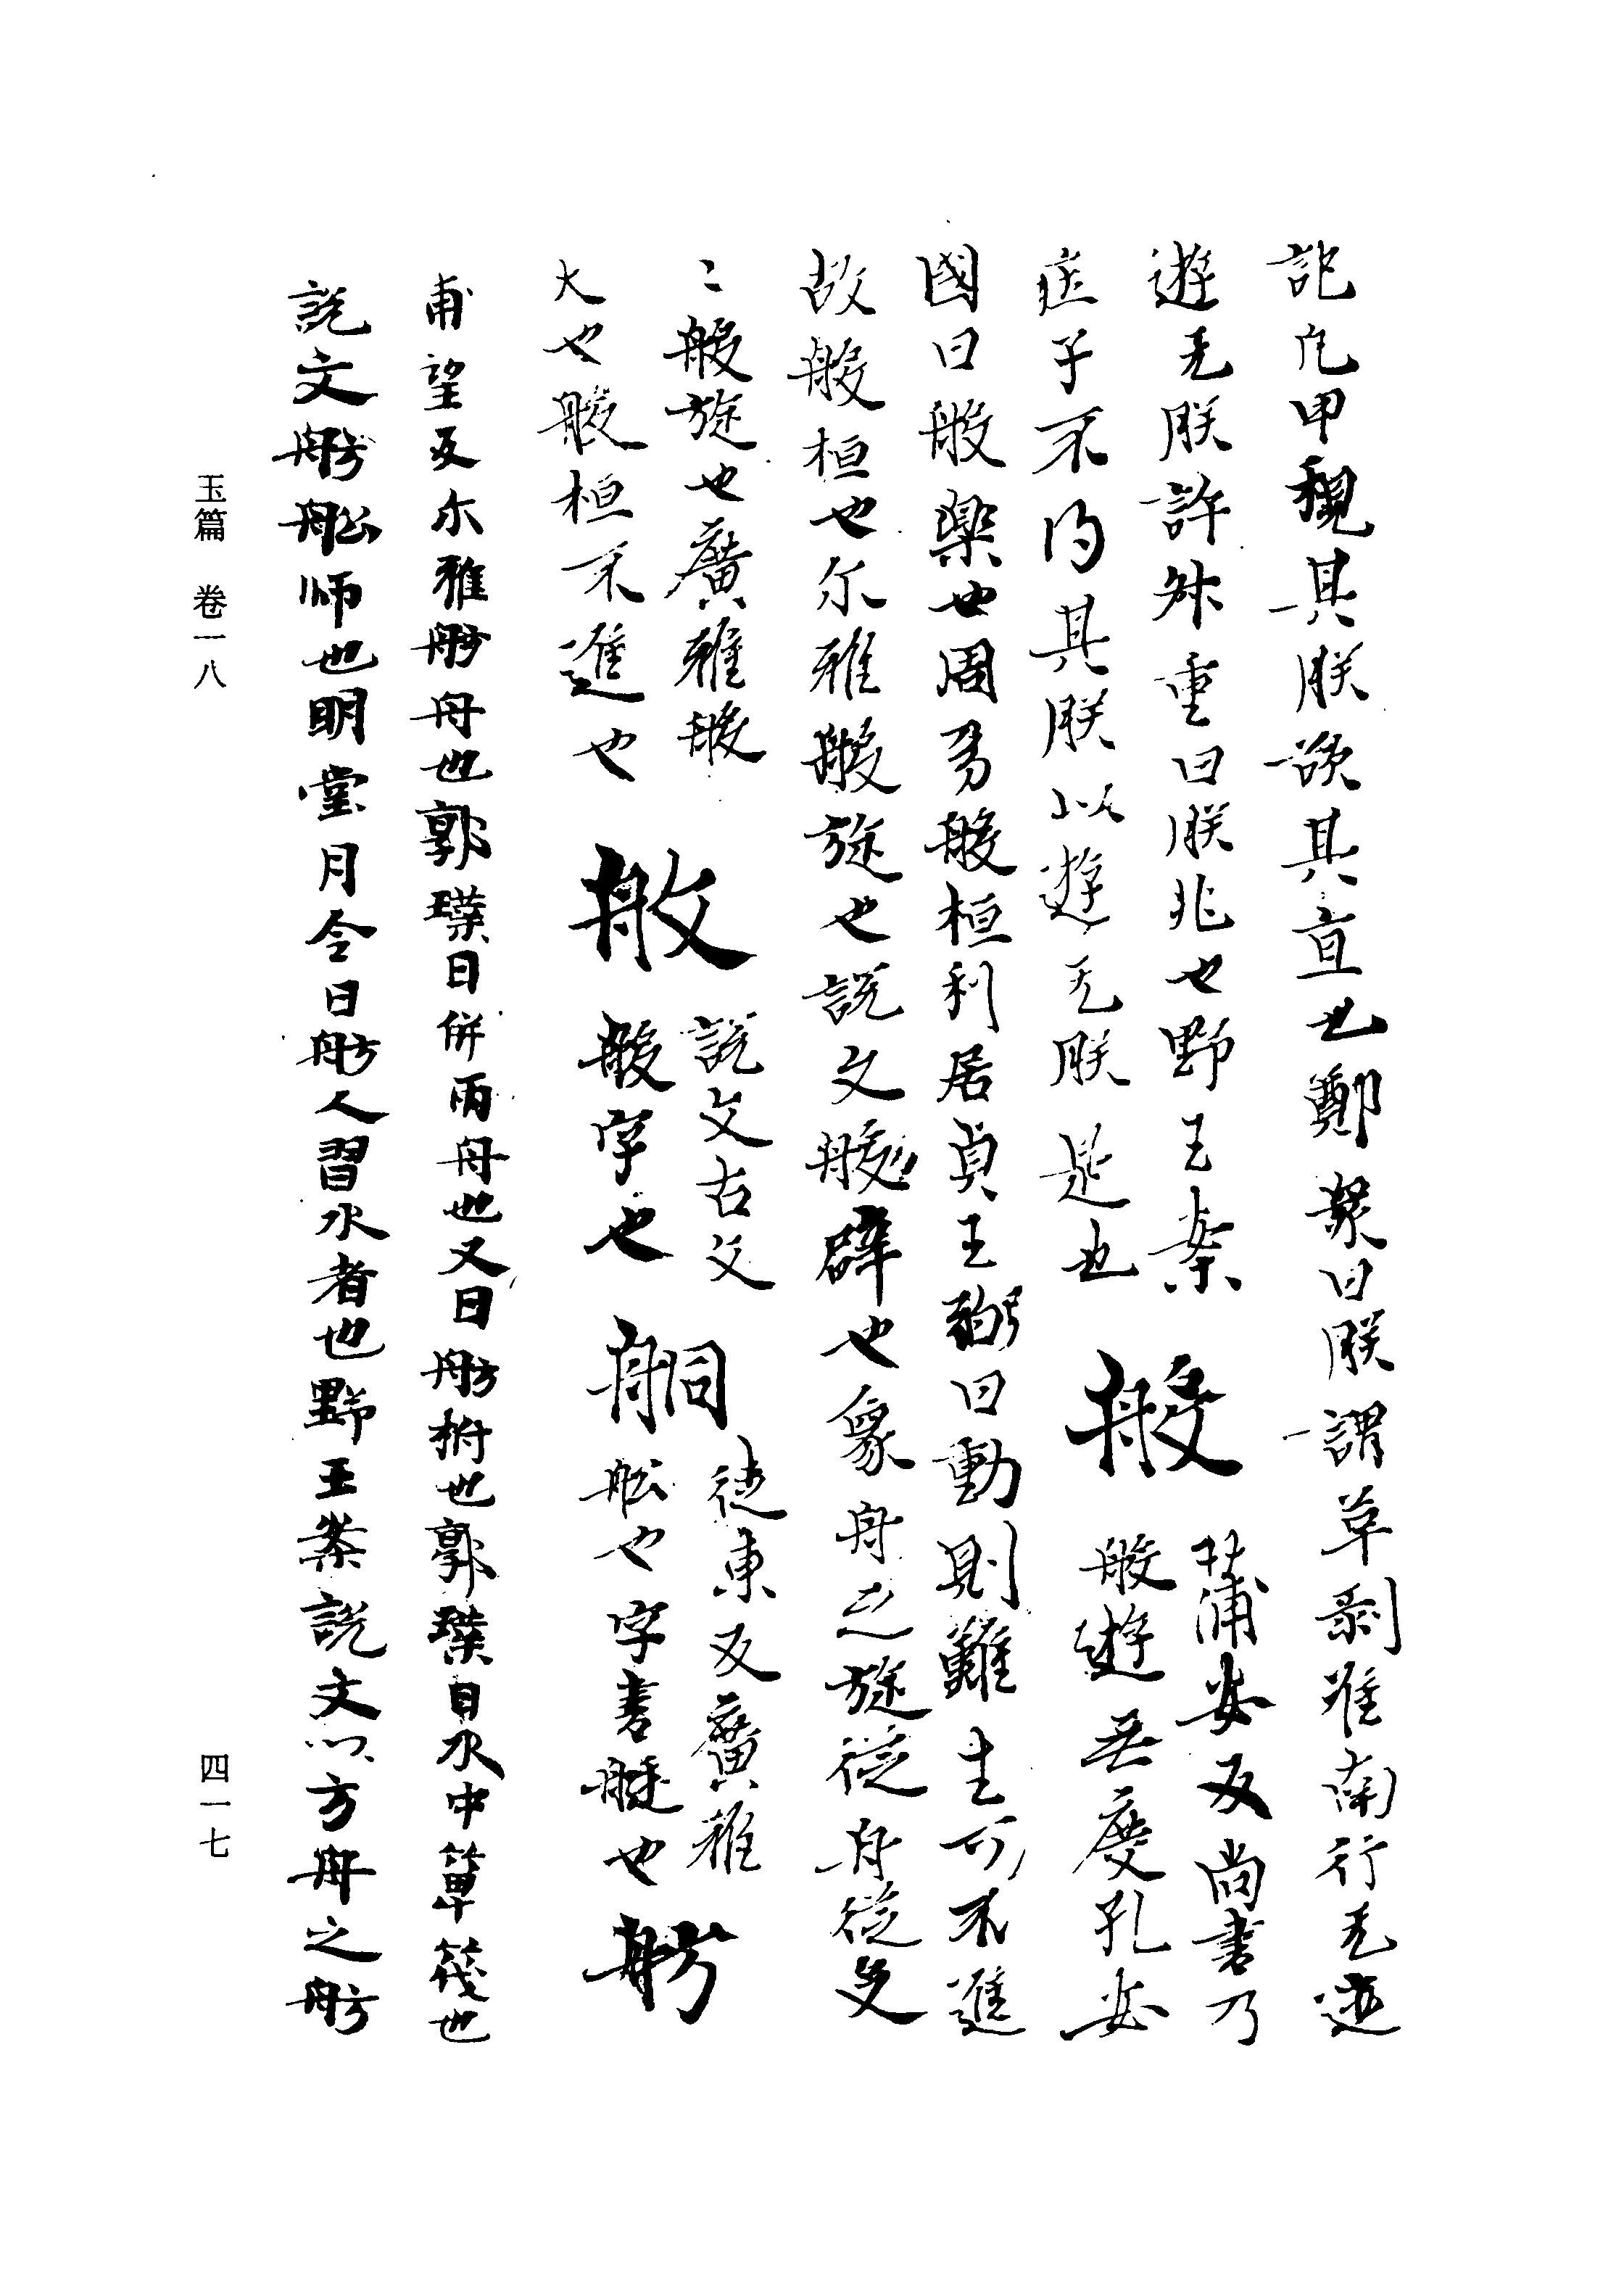 記凢甲䙷其朕欲其亘也鄭衆曰朕謂革剬淮南行无迹
遊无朕許叔重曰朕兆也野王案
庄子不得其朕以遊无朕是也
般
蒲安反尚書乃
般遊无度孔安
國曰般樂也周易般桓利居貞王弼曰動則難生可不進
故般桓也尒雅般旋也説文般辟也象舟之旋從舟從殳
〻般旋也廣雅般
大也般桓不進也
䑧
説文古文
般字也
舸
徒東反廣雅
舩也字書艇也
舫
甫望反尒雅舫舟也郭璞曰併兩舟也又曰舫柎也郭璞曰水中箄筏也
説文舫舩师也明堂月令曰舫人習水者也野王案説文以方舟之舫
玉篇 卷一八
四一七